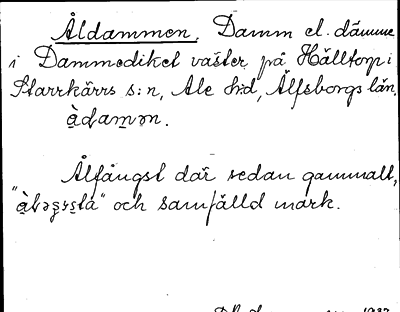 Åldammen, Damm el. dämme
i Dammediket väster på Hålltorp i
Starrkärrs s:n, Ale h:d, Älfsborgs län.
Ålfångst där sedan gammalt,
och samfälld mark.